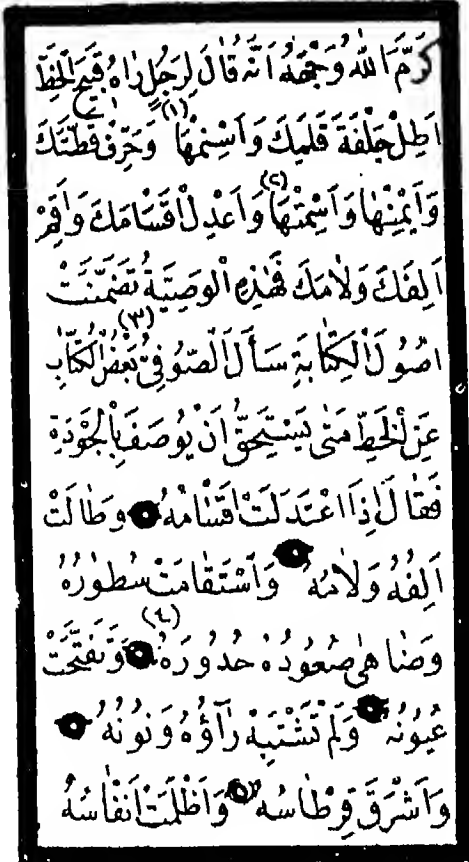 كَرَّمَ اللّٰهُ وَجْهَهُ اَنَّهُ قَالَ لِرَجُلٍ رَاٰهُ قَبِيحَ الْخَطِّ
اَطِلْ جِلْفَةَ قَلَمِكَ وَاَسْمِنْهَا (١) وَحَرِّفْ قَطَّتَكَ
وَاَيْمِنْهَا وَاَسْمِتْهَا (٢) وَاَعْدِلْ اَقْسَامَكَ وَاَقِمْ
اَلِفَكَ وَلَامَكَ فَهٰذِهِ الْوَصِيَّةُ تَضَمَّنَتْ
اُصُولَ الْكِتَابَةِ (٣) سَأَلَ الصُّوفِيُّ بَعْضَ الْكُتَّابِ
عَنِ الْخَطِّ مَتٰى يَسْتَحِقُّ اَنْ يُوصَفَ بِالْجَوْدَةِ
فَقَالَ اِذَا اعْتَدَلَتْ اَقْسَامُهُ وَطَالَتْ
اَلِفُهُ وَلَامُهُ وَاسْتَقَامَتْ سُطُورُهُ
وَضَاهٰى صُعُودُهُ حُدُورَهُ (٤) وَتَفَتَّحَتْ
عُيُونُهُ وَلَمْ تَشْتَبِهْ رَآؤُهُ وَنُونُهُ
وَاَشْرَقَ قِرْطَاسُهُ (٥) وَاَظْلَمَتْ اَنْفَاسُهُ